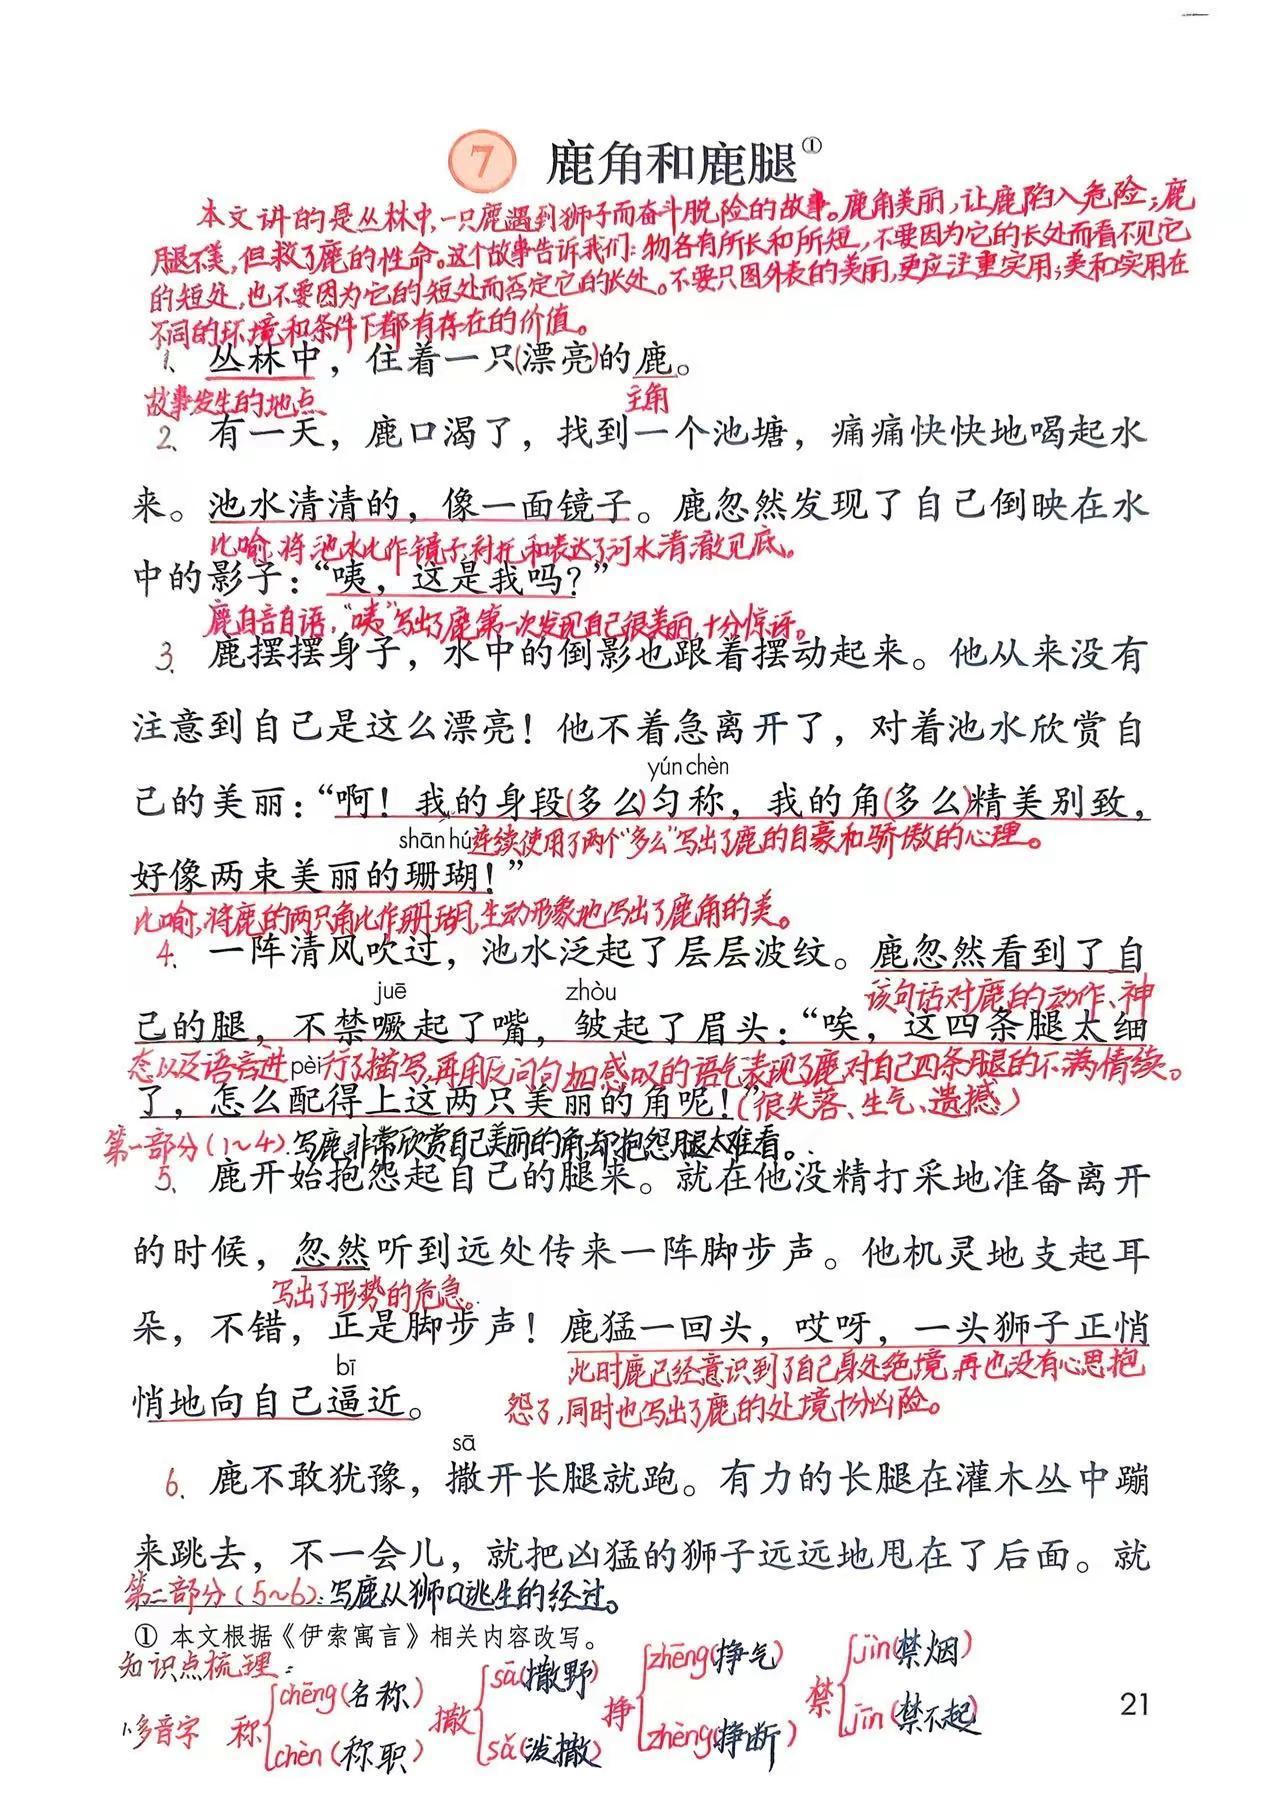 7 鹿角和鹿腿①
本文讲的是丛林中,一只鹿遇到狮子而奋斗脱险的故事。鹿角美丽,让鹿陷入危险;鹿
腿不美,但救了鹿的性命。这个故事告诉我们:物各有所长和所短,不要因为它的长处而看不见它
的短处,也不要因为它的短处而否定它的长处。不要只图外表的美丽,更应注重实用;美和实用在
不同的环境和条件下都有存在的价值。
1. 丛林中,住着一只(漂亮)的鹿。
故事发生的地点 主角
2. 有一天,鹿口渴了,找到一个池塘,痛痛快快地喝起水
来。池水清清的,像一面镜子。鹿忽然发现了自己倒映在水
比喻,将池水比作镜子,衬托和表达了河水清澈见底。
中的影子:“咦,这是我吗?”
鹿自言自语,“咦”写出了鹿第一次发现自己很美丽,十分惊讶。
3. 鹿摆摆身子,水中的倒影也跟着摆动起来。他从来没有
注意到自己是这么漂亮!他不着急离开了,对着池水欣赏自
yún chèn
己的美丽:“啊!我的身段(多么)匀称,我的角(多么)精美别致,
shān hú 连续使用了两个“多么”写出了鹿的自豪和骄傲的心理。
好像两束美丽的珊瑚!”
比喻,将鹿的两只角比作珊瑚,生动形象地写出了鹿角的美。
4. 一阵清风吹过,池水泛起了层层波纹。鹿忽然看到了自
juē zhòu 该句话对鹿的动作、神
己的腿,不禁噘起了嘴,皱起了眉头:“唉,这四条腿太细
态以及语言进 pèi 行了描写,再用反问句加感叹的语气表现了鹿对自己四条腿的不满情绪。
了,怎么配得上这两只美丽的角呢!”(很失落、生气、遗憾)
第一部分(1~4):写鹿非常欣赏自己美丽的角,却抱怨腿太难看。
5. 鹿开始抱怨起自己的腿来。就在他没精打采地准备离开
的时候,忽然听到远处传来一阵脚步声。他机灵地支起耳
写出了形势的危急。
朵,不错,正是脚步声!鹿猛一回头,哎呀,一头狮子正悄
bī 此时鹿已经意识到了自己身处绝境,再也没有心思抱
悄地向自己逼近。 怨了,同时也写出了鹿的处境十分凶险。
sā
6. 鹿不敢犹豫,撒开长腿就跑。有力的长腿在灌木丛中蹦
来跳去,不一会儿,就把凶猛的狮子远远地甩在了后面。就
第二部分(5~6):写鹿从狮口逃生的经过。
① 本文根据《伊索寓言》相关内容改写。
知识点梳理:
1.多音字 称 chēng(名称) chèn(称职) 撒 sā(撒野) sǎ(泼撒) 挣 zhēng(挣气) zhèng(挣断) 禁 jìn(禁烟) jīn(禁不起)
21